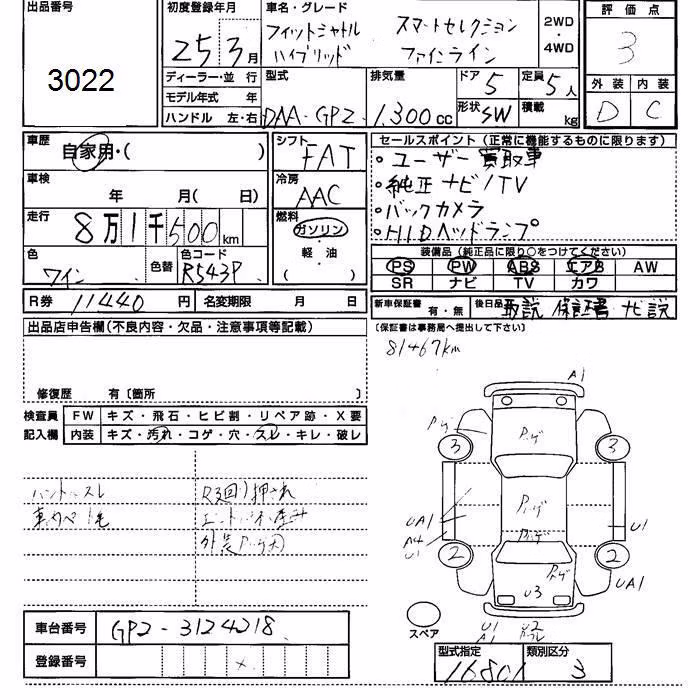 出品番号
3022
初度登録年月
25年3月
車名・グレード
フィットシャトル スマートセレクション
ハイブリッド ファインライン
2WD
・
4WD
評価点
3
外装 内装
D C
ディーラー・並行
モデル年式 年
ハンドル 左・右
型式
DAA-GP2
排気量
1.300cc
ドア
5
定員
5人
形状
SW
積載
kg
車歴
自家用・( )
車検
年 月( 日)
走行
8万1千500km
色
ワイン
色替
色コード
R543P
シフト
FAT
冷房
AAC
燃料
ガソリン
・
軽・油
( )
セールスポイント(正常に機能するものに限ります)
・ユーザー買取車
・純正ナビ/TV
・バックカメラ
・HIDヘッドランプ
装備品(純正品に限り○をつけてください)
PS PW ABS エアB AW
SR ナビ TV カワ
R券 11440円 名変期限 月 日
新車保証書 有・無 後日品 取説 保証書 ナビ説
(保証書は事務局へ提出して下さい)
81467km
出品店申告欄(不良内容・欠品・注意事項等記載)
修復歴 有〔箇所 〕
検査員
記入欄
FW キズ・飛石・ヒビ割・リペア跡・X要
内装 キズ・汚れ・コゲ・穴・スレ・キレ・破レ
ハンドルスレ
外装
A1
3 3
UA1
A4
U1
U1
2 2
U3
UA1
スペア
U1
A1
U2
車台番号 GP2-3124218
登録番号
型式指定 類別区分
16801 3